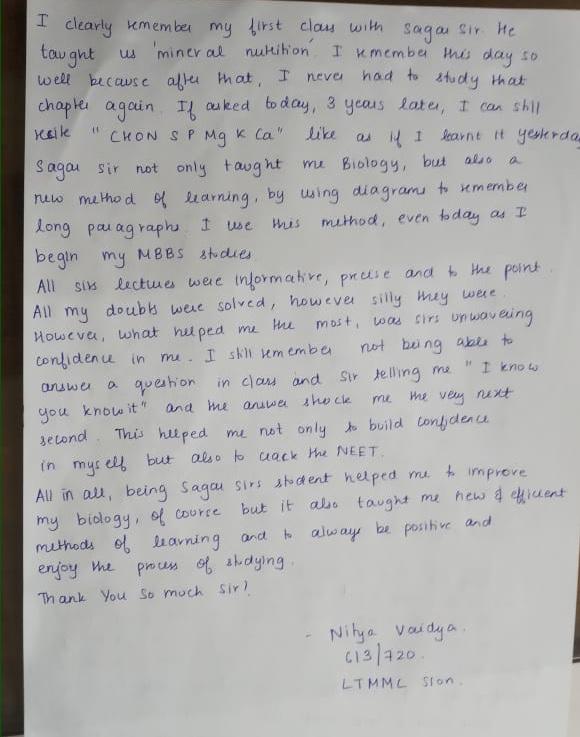 I clearly remember my first class with Sagar Sir. He
taught us 'mineral nutrition'. I remember this day so
well because after that, I never had to study that
chapter again. If asked today, 3 years later, I can still
"CHON S P Mg K Ca" like as if I learnt it yesterday
Sagar Sir not only taught me Biology, but also a
new method of learning, by using diagrams to remember
long paragraphs. I use this method, even today as I
begin my MBBS studies.
All sirs lectures were informative, precise and to the point.
All my doubts were solved, however silly they were.
However, what helped me the most, was sirs unwavering
confidence in me. I still remember not being able to
answer a question in class and Sir telling me "I know
you know it" and the answer struck me the very next
second. This helped me not only to build confidence
in myself but also to crack the NEET.
All in all, being Sagar sirs student helped me to improve
my biology, of course but it also taught me new & efficient
methods of learning and to always be positive and
enjoy the process of studying.
Thank You So much Sir!
- Nitya Vaidya.
613/720.
LTMMC Sion.